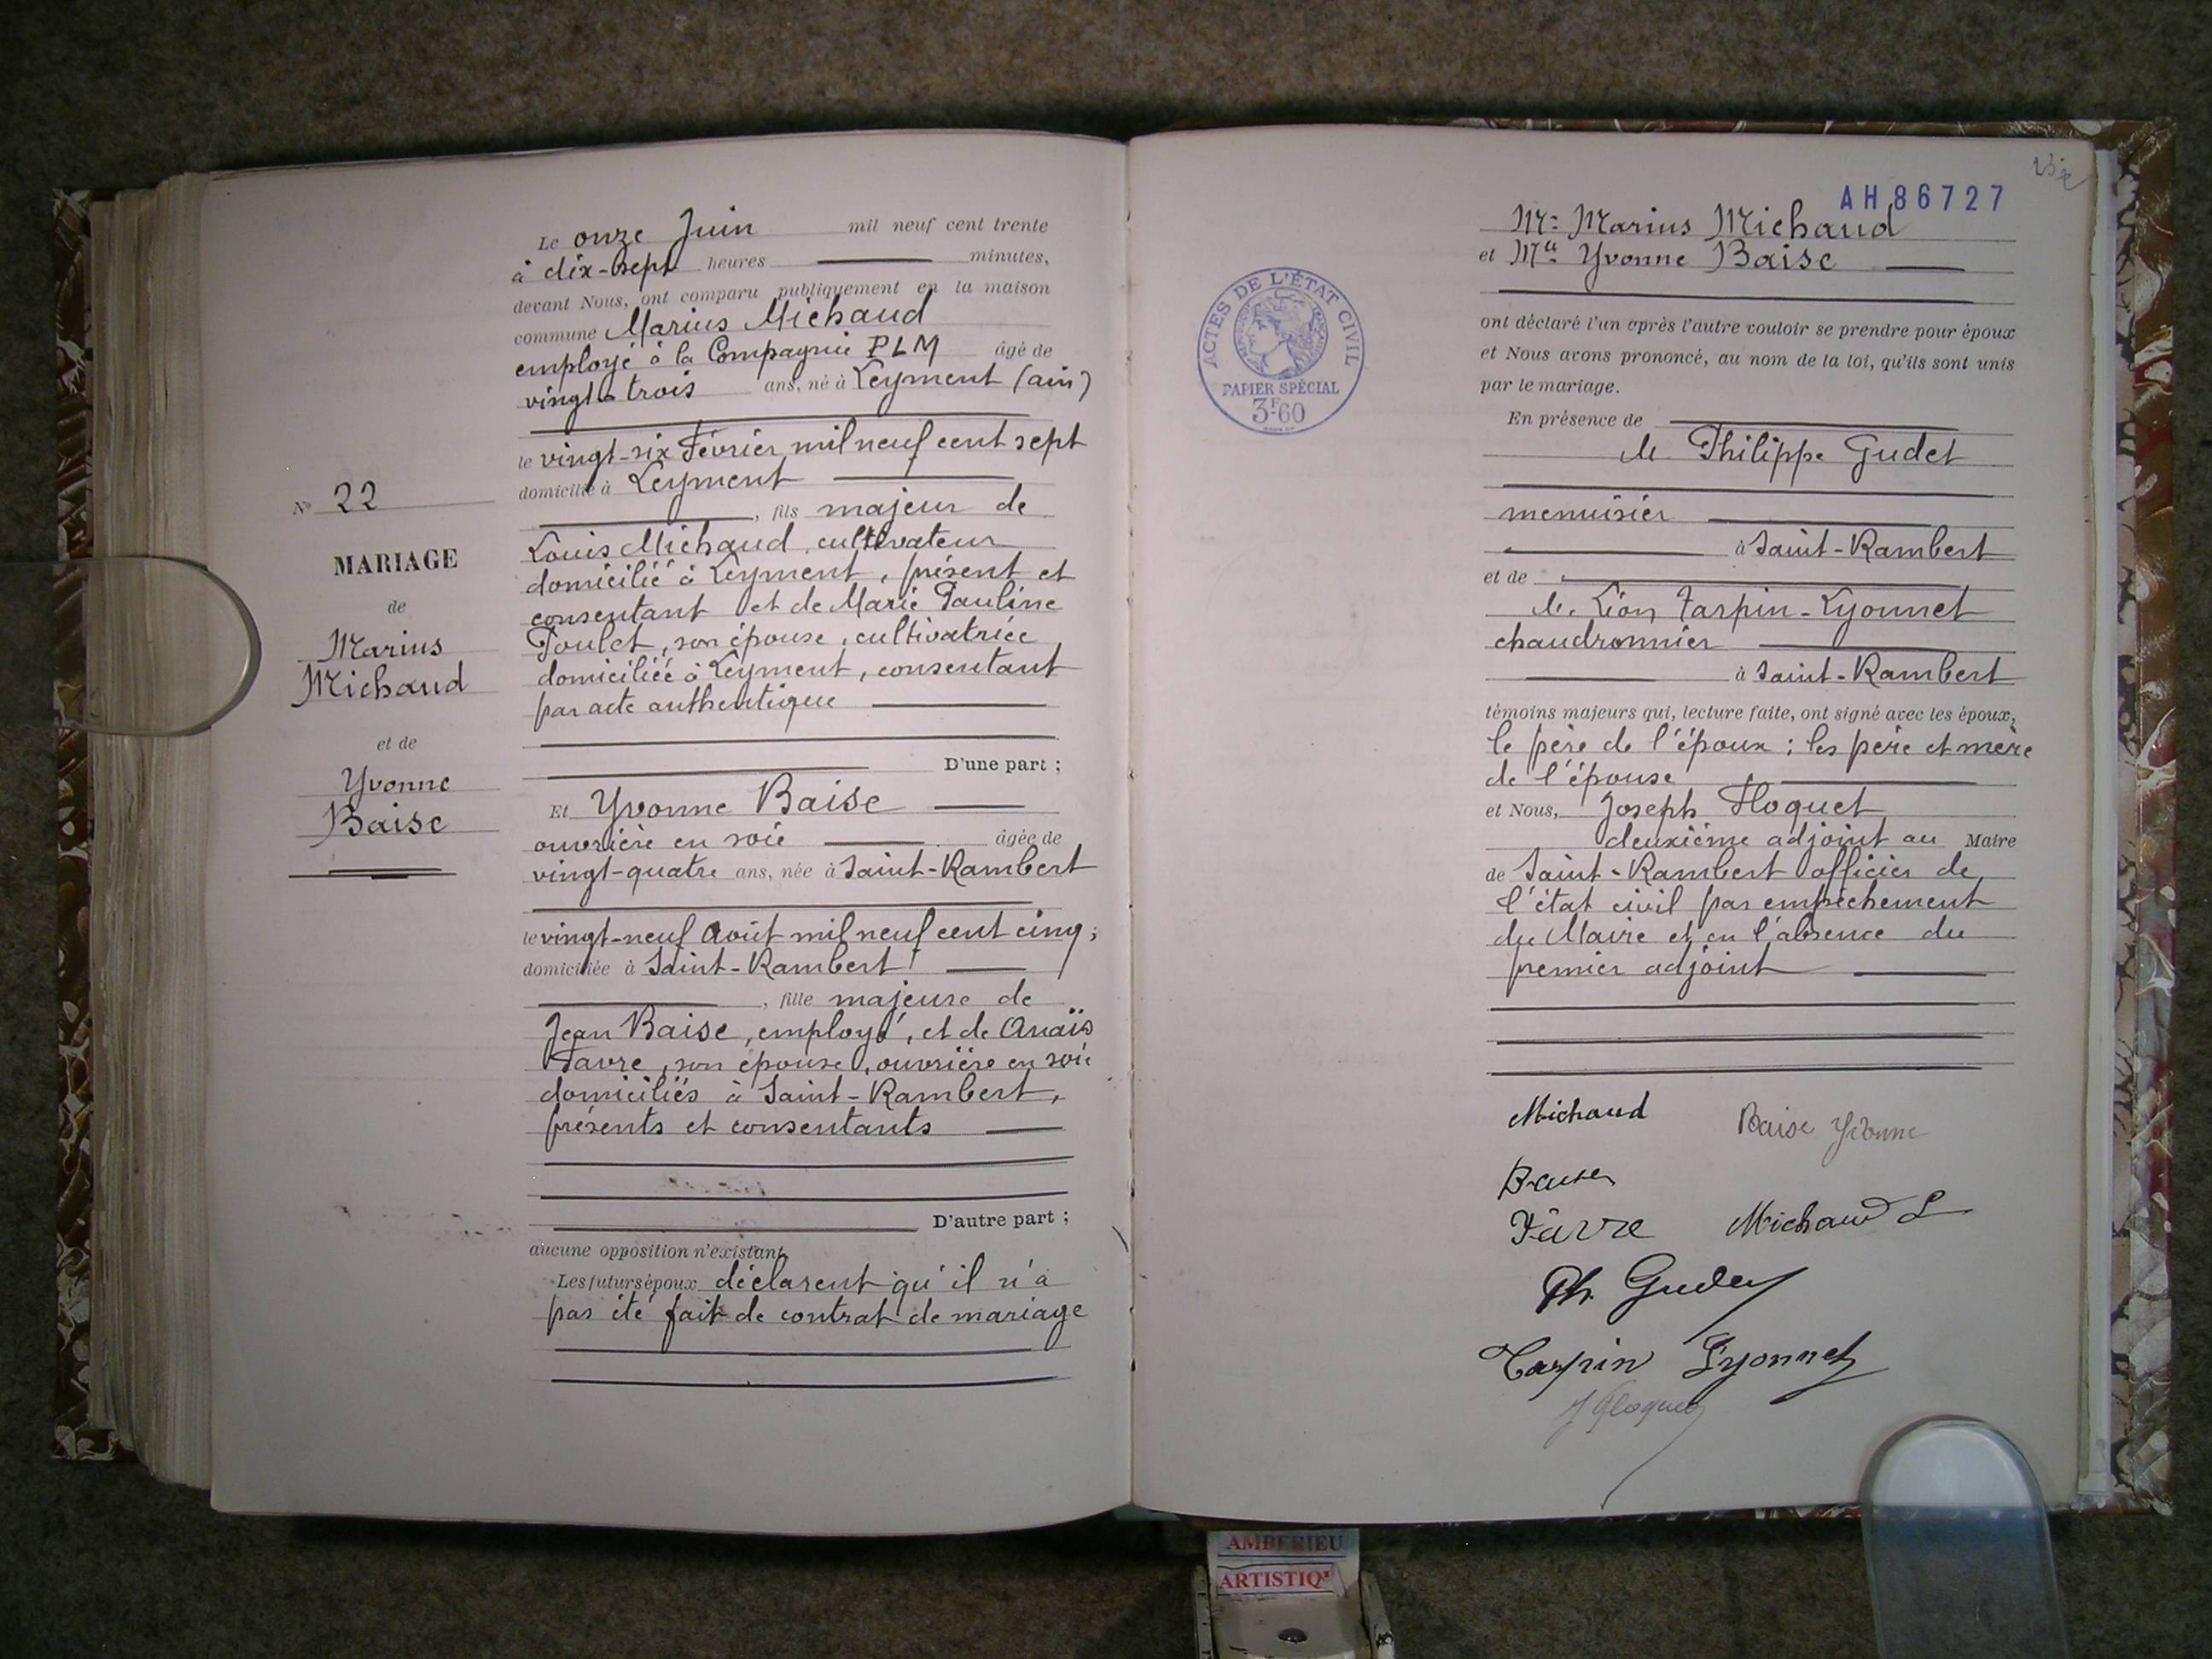 Le onze Juin mil neuf cent trente
à dix-sept heures minutes,
devant Nous, ont comparu publiquement en la maison
commune Marius Michaud
employé à la Compagnie PLM âgé de
vingt-trois ans, né à Leyment (ain)
le vingt-six Février mil neuf cent sept
domicilié à Leyment
, fils majeur de
Louis Michaud, cultivateur
domicilié à Leyment, présent et
consentant et de Marie Pauline
Poulet, son épouse, cultivatrice
domiciliée à Leyment, consentant
par acte authentique
D'une part ;
Et Yvonne Baise
ouvrière en soie âgée de
vingt-quatre ans, née à Saint-Rambert
le vingt-neuf Août mil neuf cent cinq;
domiciliée à Saint-Rambert
, fille majeure de
Jean Baise, employé, et de Anaïs
Favre, son épouse, ouvrière en soie
domiciliés à Saint-Rambert,
présents et consentants
D'autre part ;
aucune opposition n'existant
Les futurs époux déclarent qu'il n'a
pas été fait de contrat de mariage
N° 22
MARIAGE
de
Marius
Michaud
et de
Yvonne
Baise
AH86727
Mr Marius Michaud
et Mlle Yvonne Baise
ACTES DE L'ÉTAT CIVIL
PAPIER SPÉCIAL
3F60
ont déclaré l'un après l'autre vouloir se prendre pour époux
et Nous avons prononcé, au nom de la loi, qu'ils sont unis
par le mariage.
En présence de
M. Philippe Gudet
menuisier
à Saint-Rambert
et de
M. Léon Tarpin-Lyonnet
chaudronnier
à Saint-Rambert
témoins majeurs qui, lecture faite, ont signé avec les époux,
le père de l'époux; les père et mère
de l'épouse
et Nous, Joseph Floquet
deuxième adjoint au Maire
de Saint-Rambert officier de
l'état civil par empêchement
du Maire et en l'absence du
premier adjoint
Michaud Baise Yvonne
Favre Michaud L
Ph. Gudet
Tarpin Lyonnet
J Floquet
AMBERIEU
ARTISTIQ